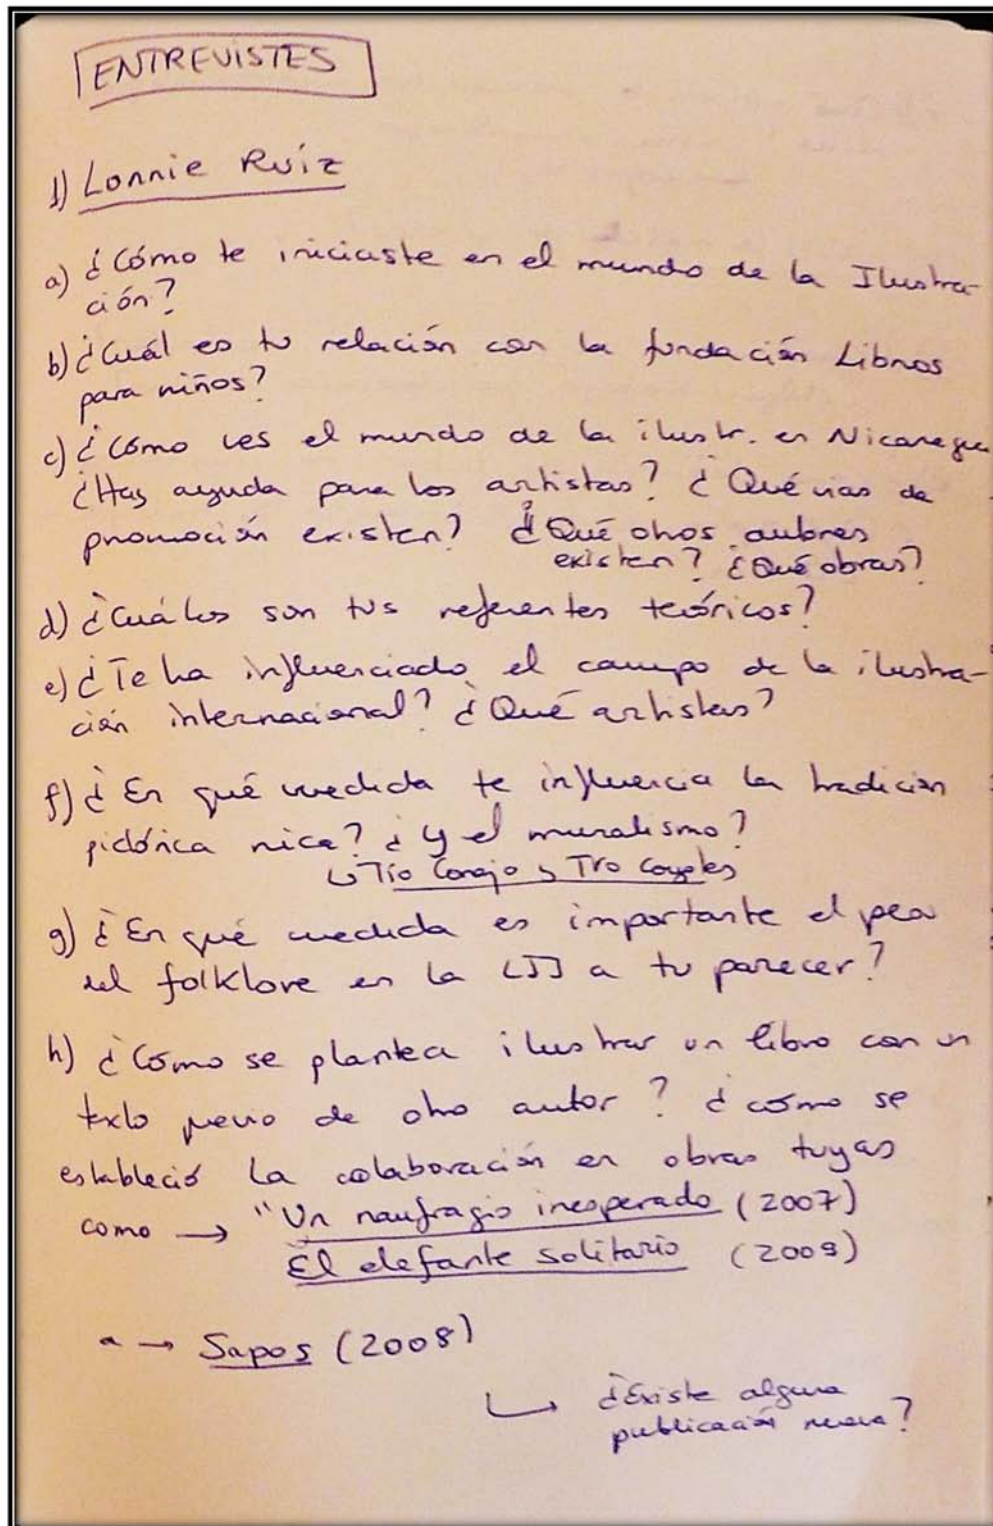 ENTREVISTES
1) Lonnie Ruíz
a) ¿Cómo te iniciaste en el mundo de la Ilustra-
ción?
b) ¿Cuál es tu relación con la fundación Libros
para niños?
c) ¿Cómo ves el mundo de la ilustr. en Nicaragua
¿Hay ayuda para los artistas? ¿Qué vías de
promoción existen? ¿Qué otros autores
existen? ¿Qué obras?
d) ¿Cuáles son tus referentes teóricos?
e) ¿Te ha influenciado el campo de la ilustra-
ción internacional? ¿Qué artistas?
f) ¿En qué medida te influencia la tradición
pictórica nica? ¿y el muralismo?
Tío Conejo y Tío Coyote
g) ¿En qué medida es importante el peso
del folklore en la LIJ a tu parecer?
h) ¿Cómo se plantea ilustrar un libro con un
texto previo de otro autor? ¿cómo se
estableció la colaboración en obras tuyas
como → "Un naufragio inesperado (2007)
El elefante solitario (2009)
→ Sapos (2008)
¿Existe alguna
publicación nueva?